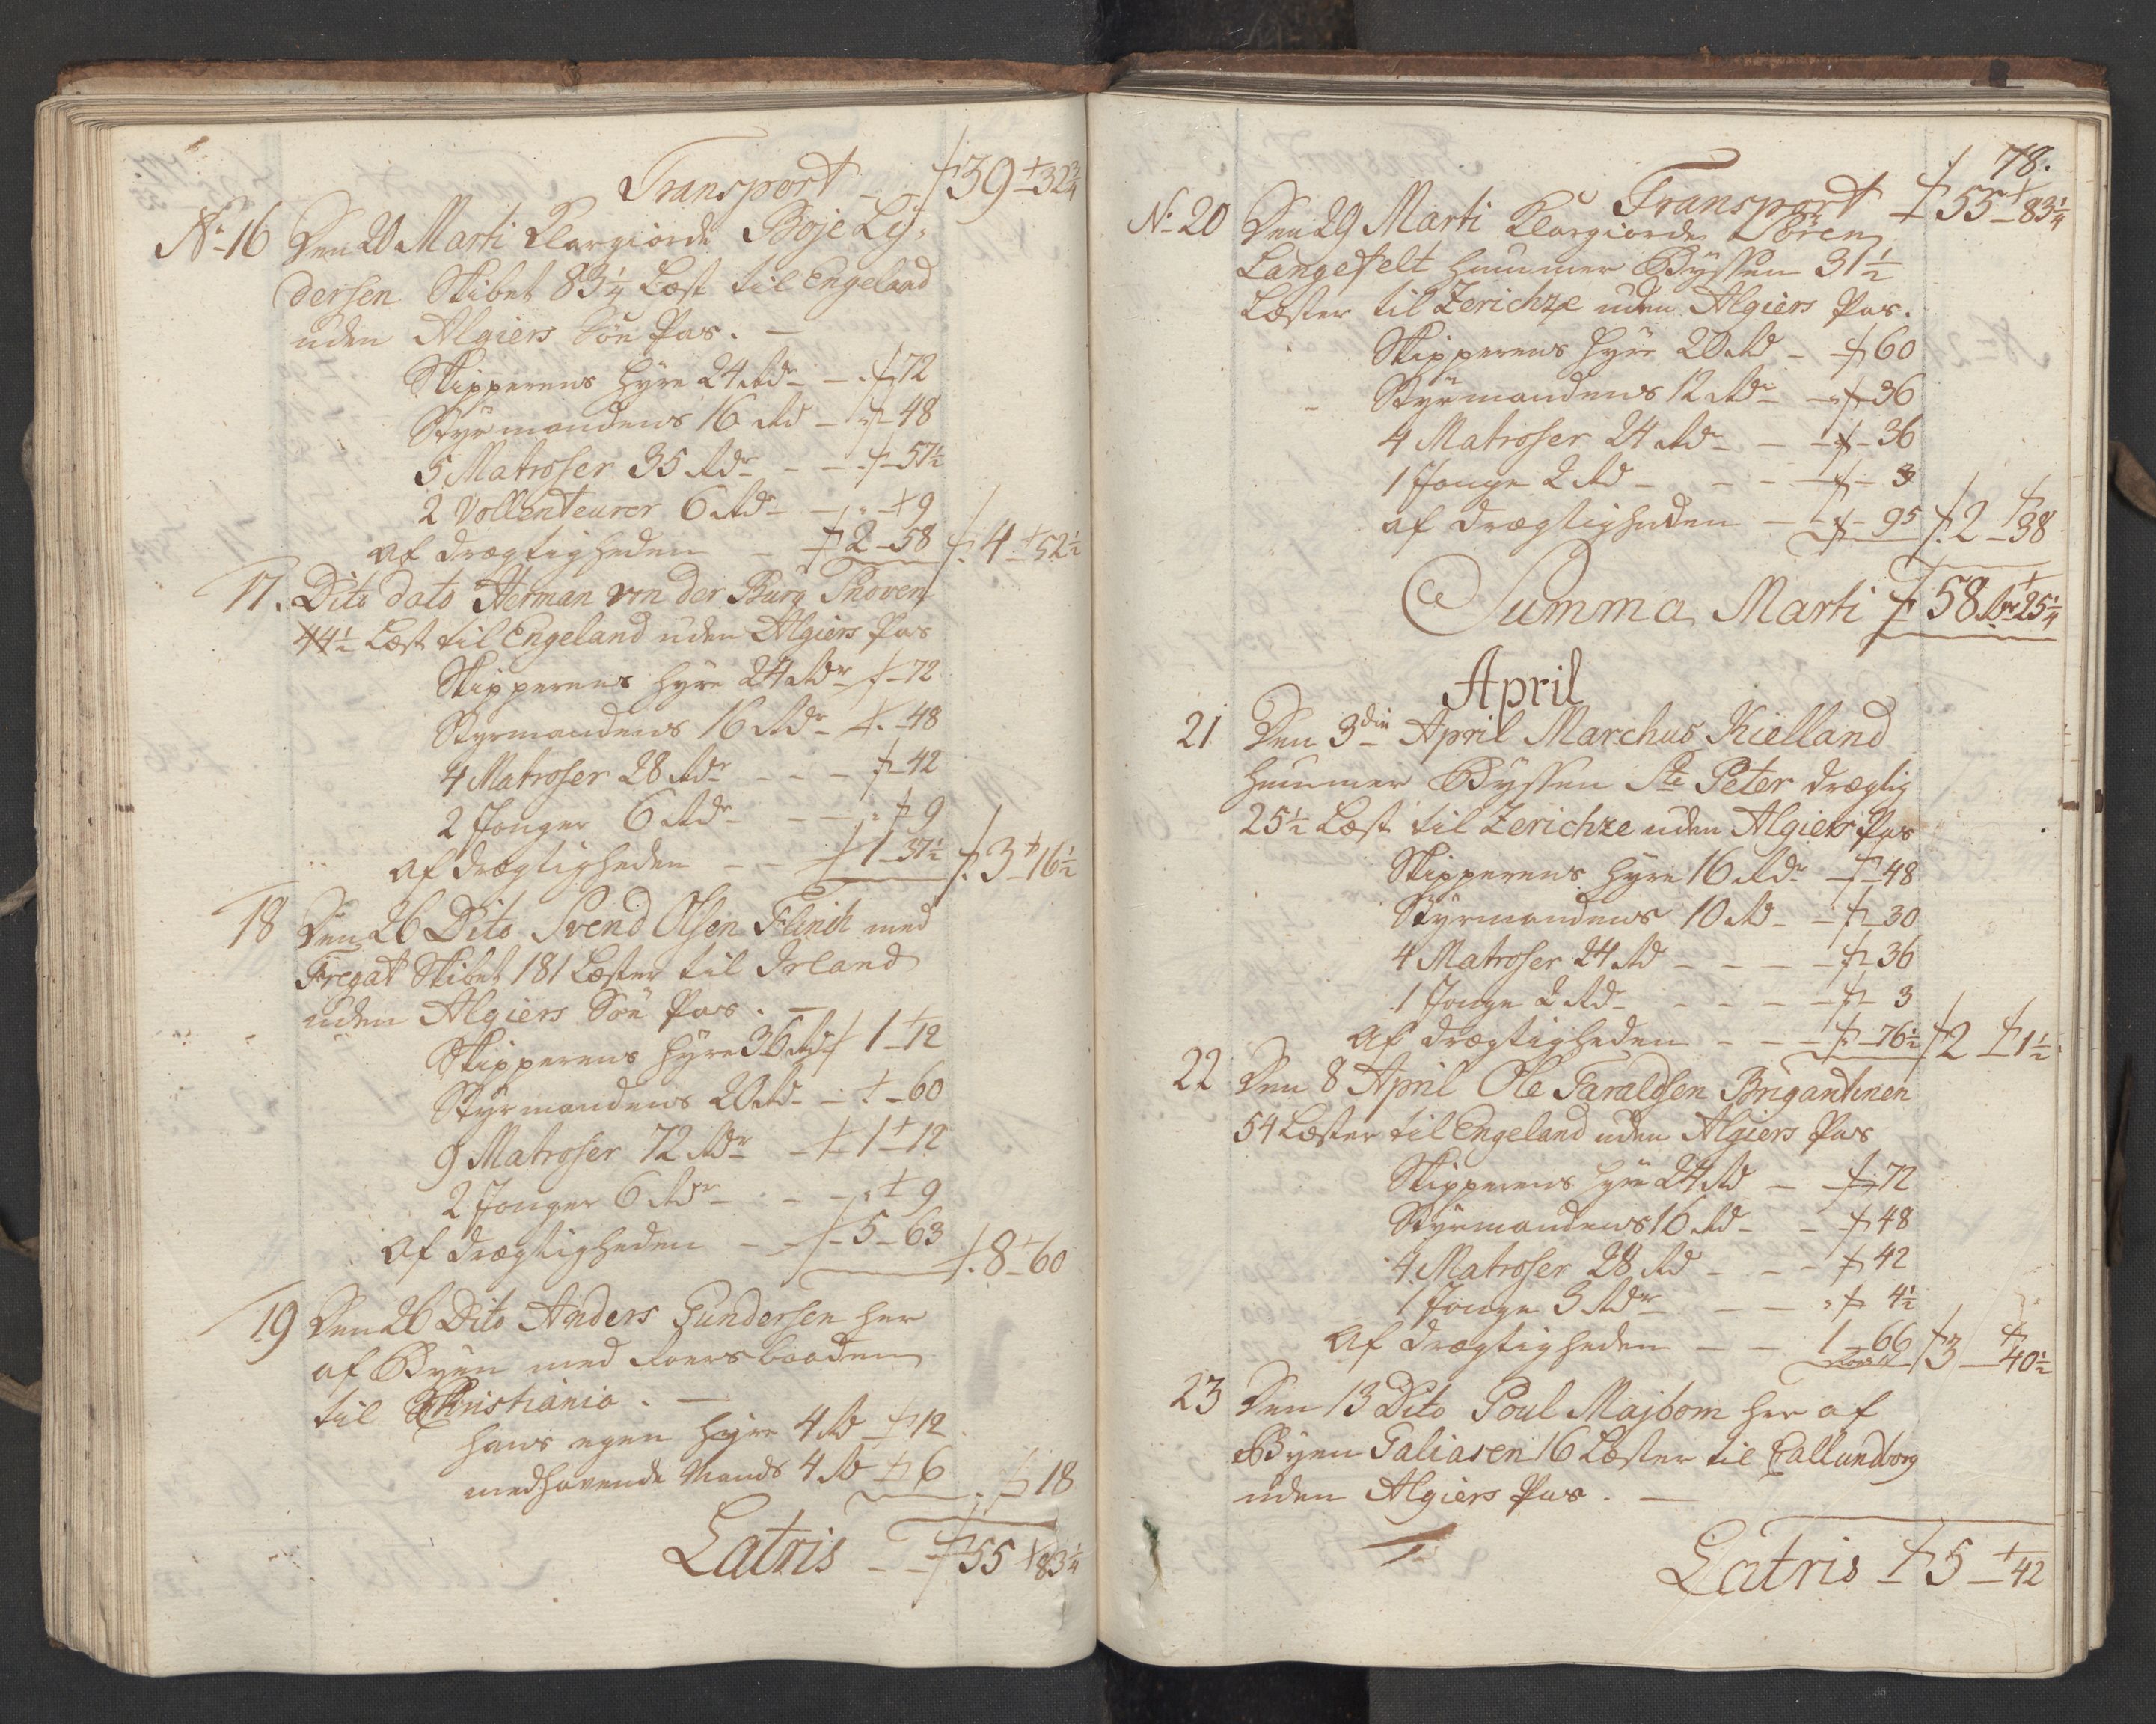 Transport - - ƒ 39 - 32 3/4
No 16 Den 20 Marti Klargiorde Boje Ly-
dersen Skibet 83 1/4 Læst til Engeland
uden Algiers Søe Pas. -
Skipperens Hyre 24 Rdr - - ƒ 72
Styrmandens 16 Rd - ƒ - 48
5 Matroser 35 Rdr - - ƒ - 57 1/2
2 Vollenteurer 6 Rdr - - 9
Af drægtigheden - ƒ 2 - 58 ƒ. 4 - 52 1/2
17. Dito dato Herman von der Burg Snoven
44 1/2 Læst til Engeland uden Algiers Pas
Skipperens Hyre 24 Rdr ƒ - 72
Styrmandens 16 Rdr - ƒ. - 48
4 Matroser 28 Rdr - - - ƒ - 42
2 Jonger 6 Rdr - - - ƒ 9
Af drægtigheden - - ƒ 1 - 37 1/2 ƒ. 3 - 16 1/2
18 Den 26 Dito Svend Olsen Flinch med
Fregat Skibet 181 Læster til Irland
uden Algiers Søe Pas. -
Skipperens Hyre 36 Rdr ƒ 1 - 12
Styrmandens 20 Rd - - 60
9 Matroser 72 Rdr - ƒ 1 - 12
2 Jonger 6 Rdr - - - 9
Af drægtigheden - - ƒ - 5 - 63 ƒ. 8 - 60
19 Den 26 Dito Anders Gundersen her
af Byen med Roersbaaden
til Christiania. -
Hans egen Hyre 4 Rd ƒ 12
medhavende Mands 4 Rd ƒ 6 ƒ 18
Latris - - ƒ 55 - 83 1/4
78.
Transport - ƒ 55 - 83 1/4
No 20 Den 29 Marti Klargiorde Sören
Langefelt Hummer Bÿssen 31 1/2
Læster til Zerichze uden Algiers Pas.
Skipperens Hyre 20 Rd - ƒ 60
Styrmandens 12 Rdr - ƒ - 36
4 Matroser 24 Rdr - - ƒ - 36
1 Jonge 2 Rd - - - ƒ - 3
af drægtigheden - - ƒ - 95 ƒ. 2 - 38
Summa Marti ƒ 58 Rdr 25 1/4
April
21 Den 3die April Marchus Kielland
Hummer Bÿssen Ste Peter drægtig
25 1/2 Læst til Zerichze uden Algiers Pas
Skipperens Hyre 16 Rdr - ƒ - 48
Styrmandens 10 Rd - - ƒ - 30
4 Matroser 24 Rd - - - - ƒ - 36
1 Jonge 2 Rdr - - - - ƒ - 3
Af drægtigheden - - - ƒ - 76 1/2 ƒ 2 - 1 1/2
22 Den 8 April Ole Taraldsen Brigantinen
54 Læster til Engeland uden Algiers Pas
Skipperens Hyre 24 Rd - ƒ - 72
Styrmandens 16 Rd - - ƒ 48
4 Matroser 28 Rd - - - ƒ 42
1 Jonge 3 Rdr - - ƒ 4 1/2
Af drægtigheden - - 1 - 66 ƒ 3 - 40 1/2
23 Den 13 Dito Poul Majbom her af
Byen Galiasen 16 Læster til Callundborg
uden Algiers Pas. -
Latris - ƒ 5 - 42